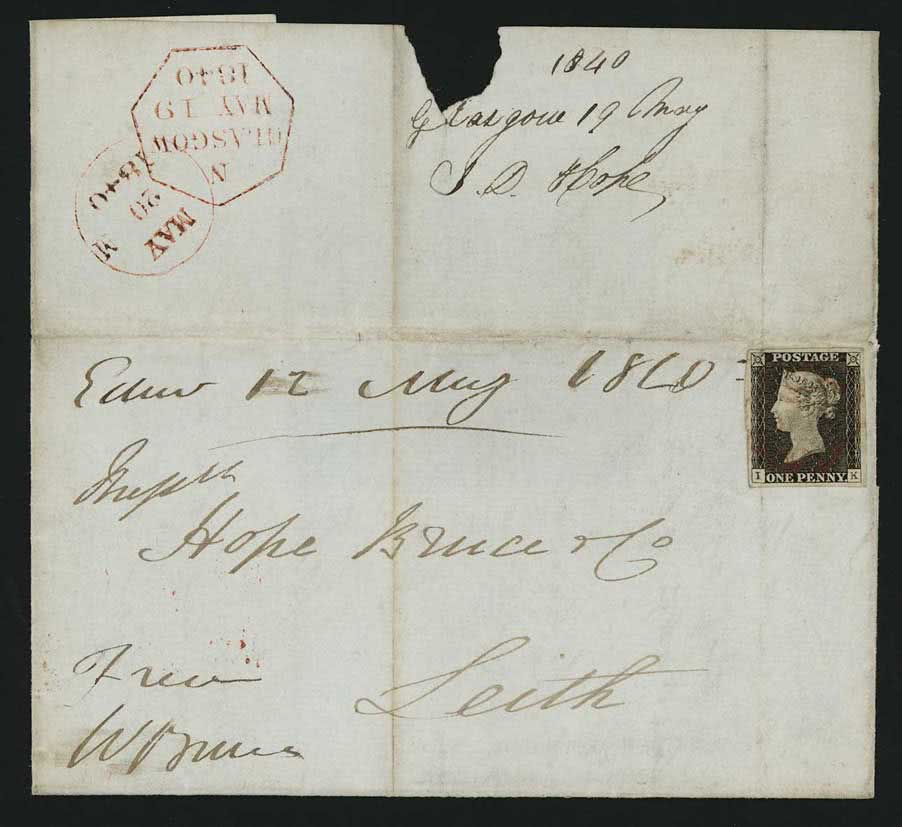 1840
Glasgow 19 May
J. D. Hope
A
GLASGOW
MAY 19
1840
M
MAY
20
1840
12 May 1840
POSTAGE
I ONE PENNY K
Hope Bruce & Co
Leith
Free
W Bruce